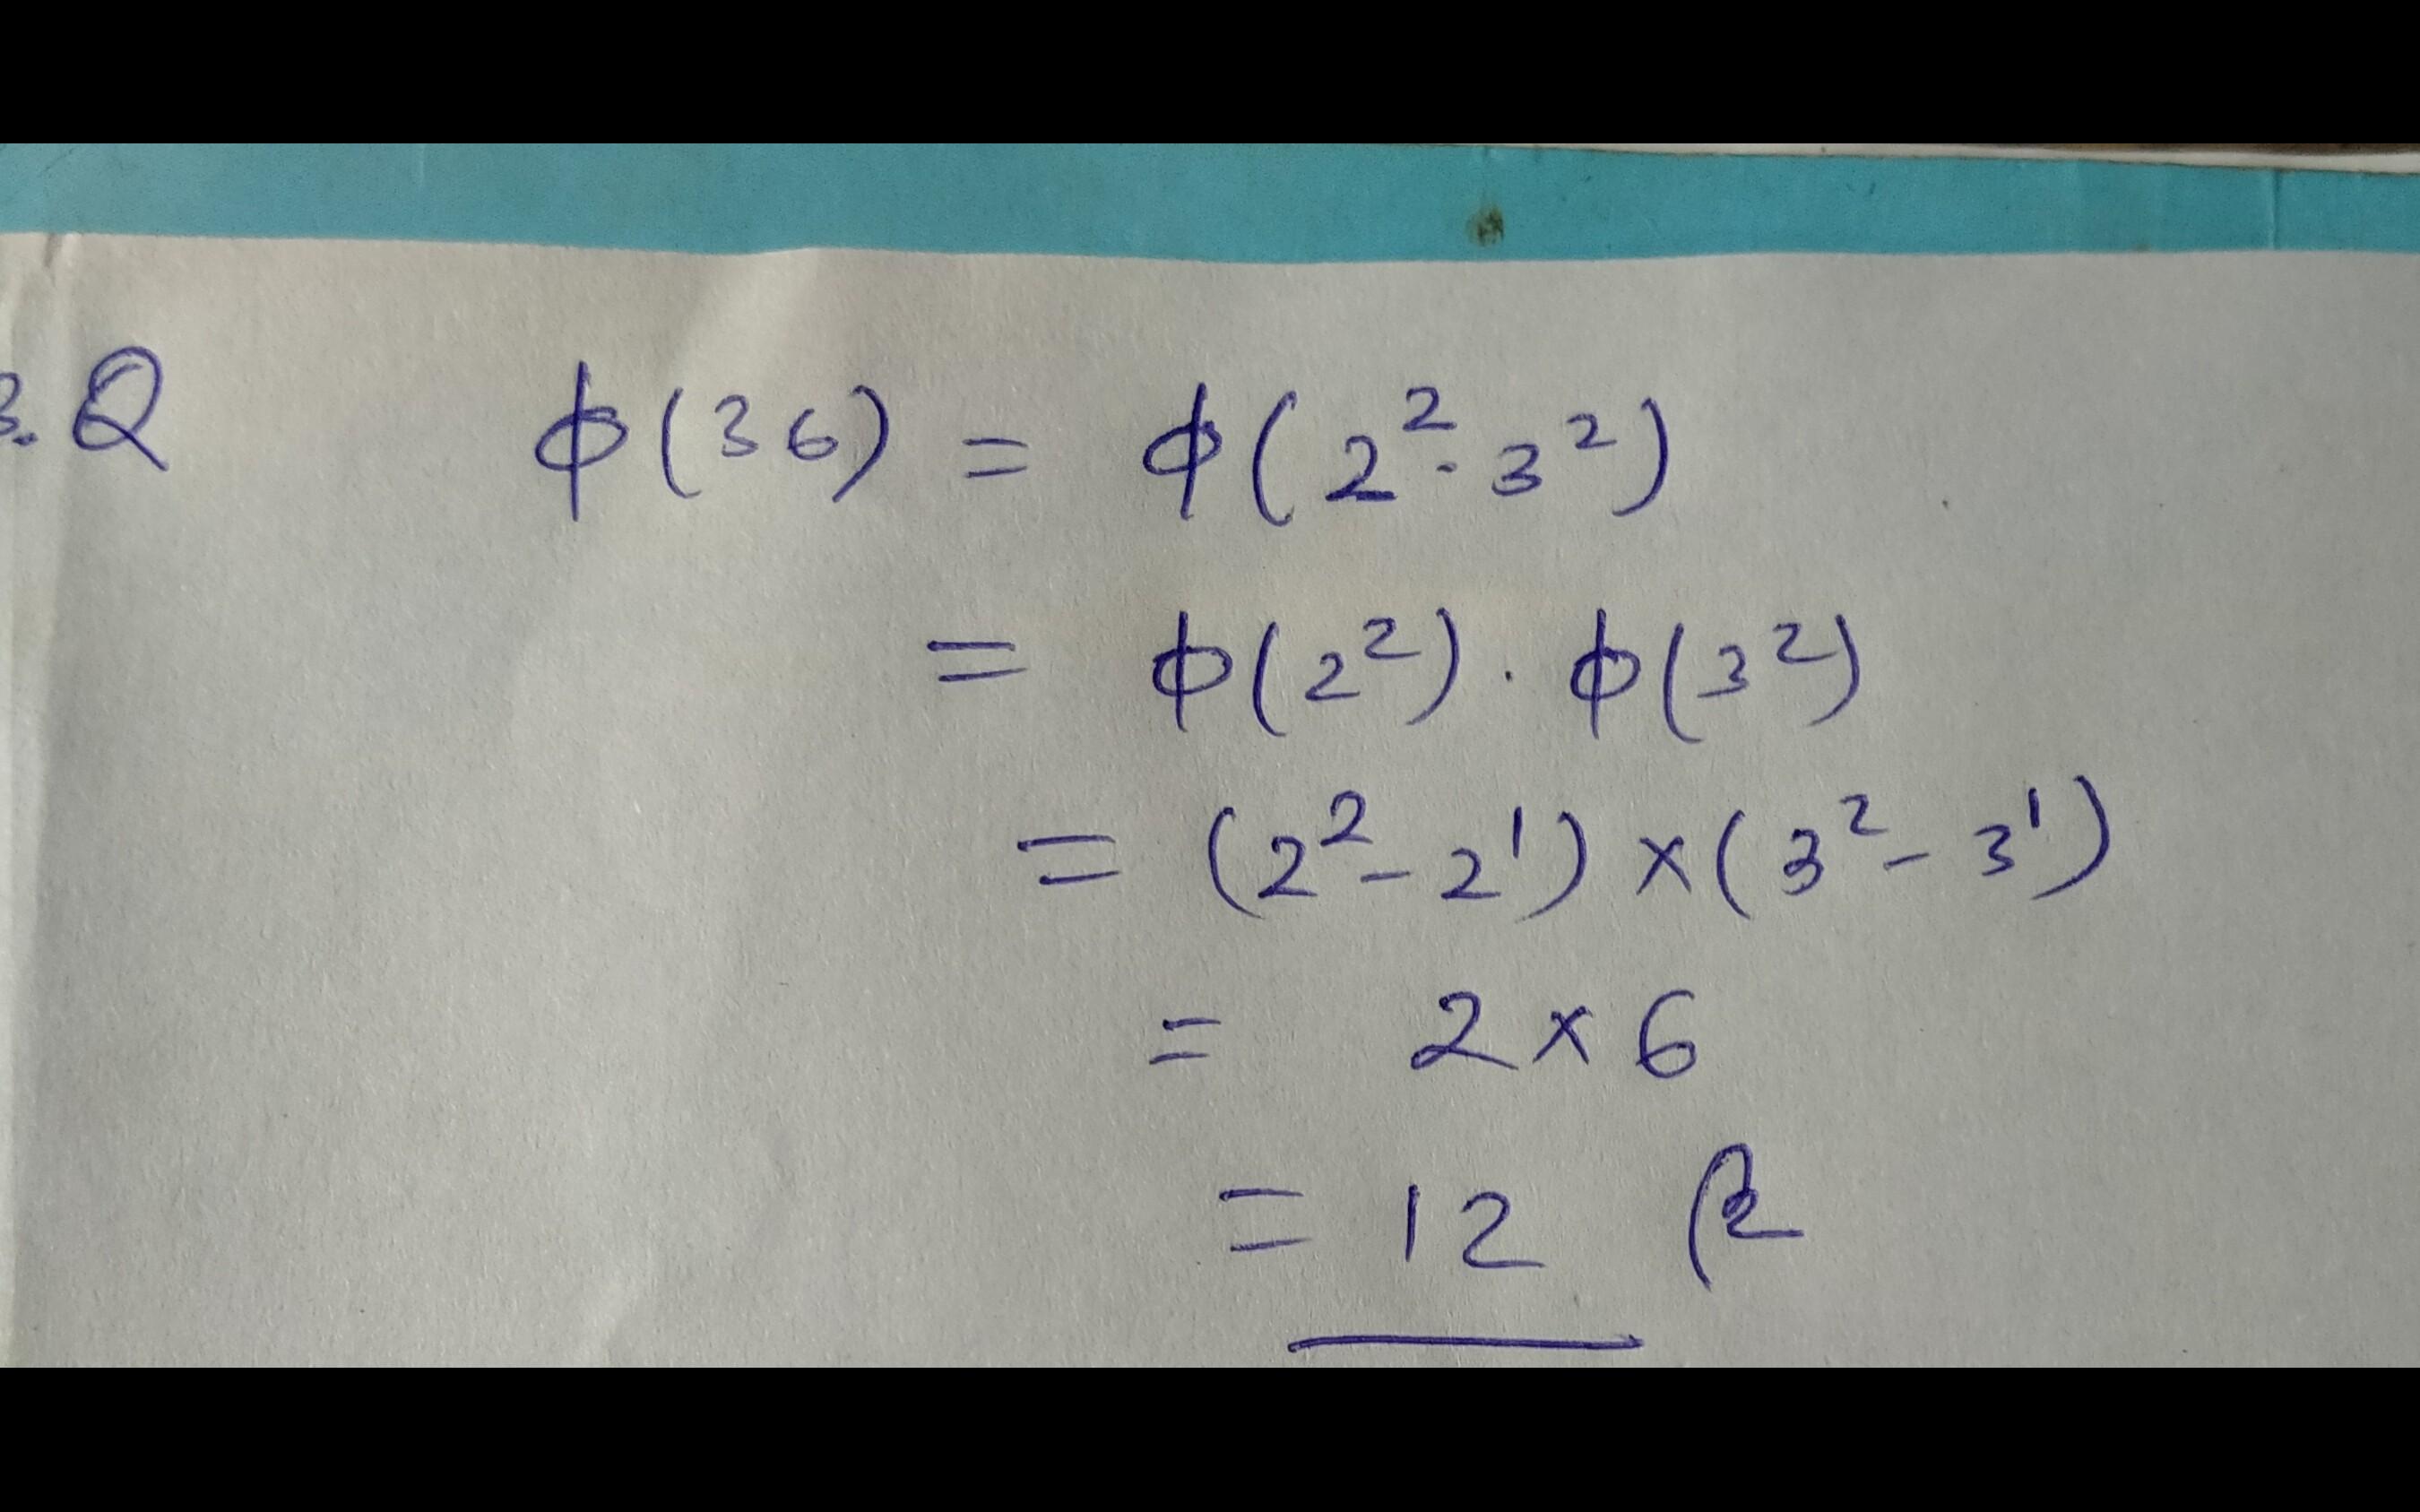 3. Q ϕ(36) = ϕ(2²·3²)
= ϕ(2²) · ϕ(3²)
= (2² - 2¹) × (3² - 3¹)
= 2 × 6
= 12